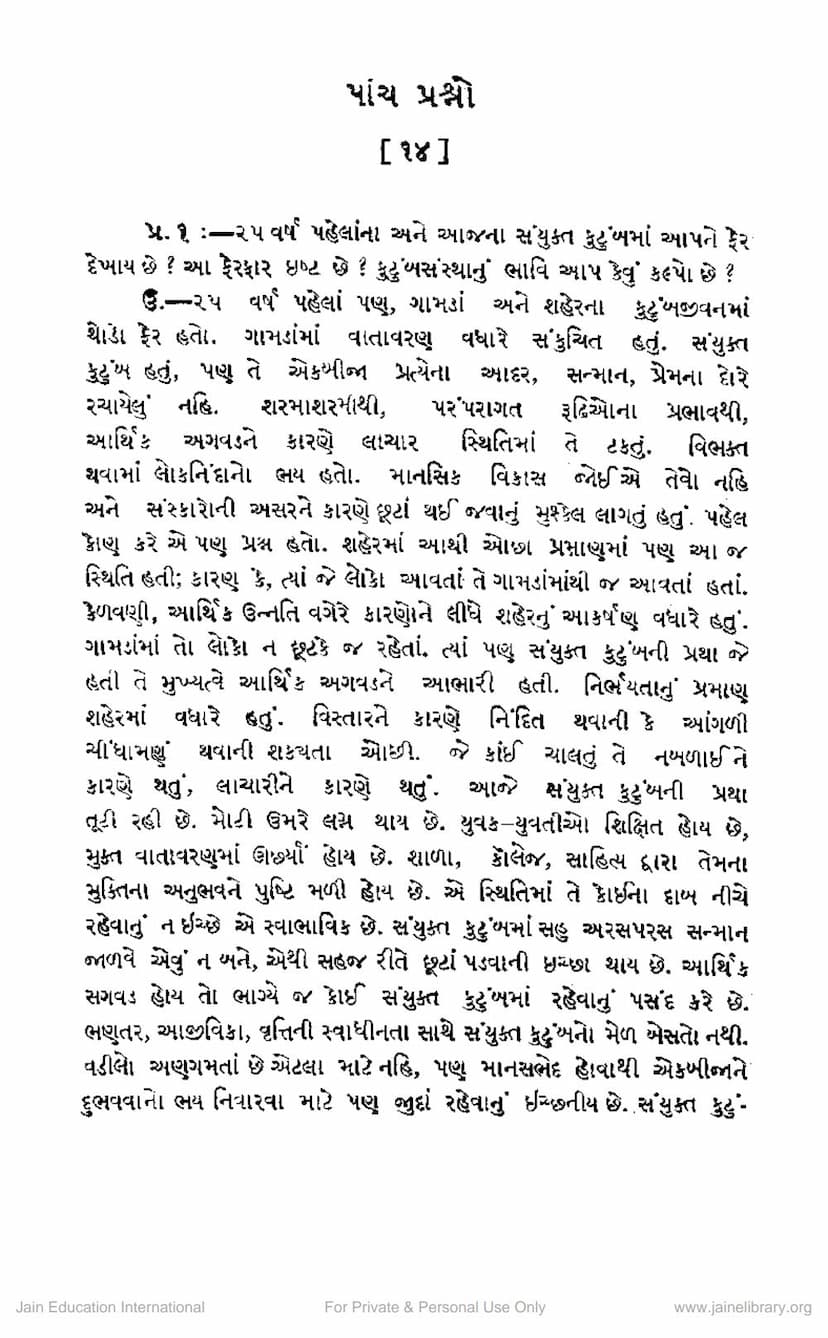 પાંચ પ્રશ્નો
[ ૧૪ ]
પ્ર. ૧ :—૨૫ વર્ષ પહેલાંના અને આજના સંયુક્ત કુટુંબમાં આપને ફેર
દેખાય છે ? આ ફેરફાર ઇષ્ટ છે ? કુટુંબસંસ્થાનું ભાવિ આપ કેવું કલ્પો છે ?
ઉ.—૨૫ વર્ષ પહેલાં પણ, ગામડાં અને શહેરના કુટુંબજીવનમાં
થોડો ફેર હતો. ગામડાંમાં વાતાવરણ વધારે સંકુચિત હતું. સંયુક્ત
કુટુંબ હતું, પણ તે એકબીજા પ્રત્યેના આદર, સન્માન, પ્રેમના દોરે
રચાયેલું નહિ. શરમાશરમીથી, પરંપરાગત રૂઢિઓના પ્રભાવથી,
આર્થિક અગવડને કારણે લાચાર સ્થિતિમાં તે ટકતું. વિભક્ત
થવામાં લોકનિંદાનો ભય હતો. માનસિક વિકાસ જોઈએ તેવો નહિ
અને સંસ્કારોની અસરને કારણે છૂટાં થઈ જવાનું મુશ્કેલ લાગતું હતું. પહેલ
કોણ કરે એ પણ પ્રશ્ન હતો. શહેરમાં આથી ઓછા પ્રમાણમાં પણ આ જ
સ્થિતિ હતી; કારણ કે, ત્યાં જે લોકો આવતાં તે ગામડાંમાંથી જ આવતાં હતાં.
કેળવણી, આર્થિક ઉન્નતિ વગેરે કારણોને લીધે શહેરનું આકર્ષણ વધારે હતું.
ગામડાંમાં તો લોકો ન છૂટકે જ રહેતાં. ત્યાં પણ સંયુક્ત કુટુંબની પ્રથા જે
હતી તે મુખ્યત્વે આર્થિક અગવડને આભારી હતી. નિર્ભયતાનું પ્રમાણ
શહેરમાં વધારે હતું. વિસ્તારને કારણે નિંદિત થવાની કે આંગળી
ચીંધામણું થવાની શકયતા ઓછી. જે કાંઈ ચાલતું તે નબળાઈને
કારણે થતું, લાચારીને કારણે થતું. આજે સંયુક્ત કુટુંબની પ્રથા
તૂટી રહી છે. મોટી ઉમરે લગ્ન થાય છે. યુવક–યુવતીઓ શિક્ષિત હોય છે,
મુક્ત વાતાવરણમાં ઊછર્યાં હોય છે. શાળા, કૉલેજ, સાહિત્ય દ્વારા તેમના
મુક્તિના અનુભવને પુષ્ટિ મળી હોય છે. એ સ્થિતિમાં તે કોઇના દાબ નીચે
રહેવાનું ન ઇચ્છે એ સ્વાભાવિક છે. સંયુક્ત કુટુંબમાં સહુ અરસપરસ સન્માન
જાળવે એવું ન બને, એથી સહજ રીતે છૂટાં પડવાની ઇચ્છા થાય છે. આર્થિક
સગવડ હોય તો ભાગ્યે જ કોઈ સંયુક્ત કુટુંબમાં રહેવાનું પસંદ કરે છે.
ભણતર, આજીવિકા, વૃત્તિની સ્વાધીનતા સાથે સંયુક્ત કુટુંબનો મેળ બેસતો નથી.
વડીલો અણગમતાં છે એટલા માટે નહિ, પણ માનસભેદ હોવાથી એકબીજાને
દુભવવાનો ભય નિવારવા માટે પણ જુદાં રહેવાનું ઇચ્છનીય છે. સંયુક્ત કુટું-
Jain Education International
For Private & Personal Use Only
www.jainelibrary.org